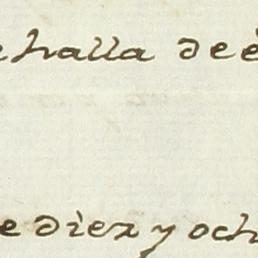 e halla de é
e diez y och